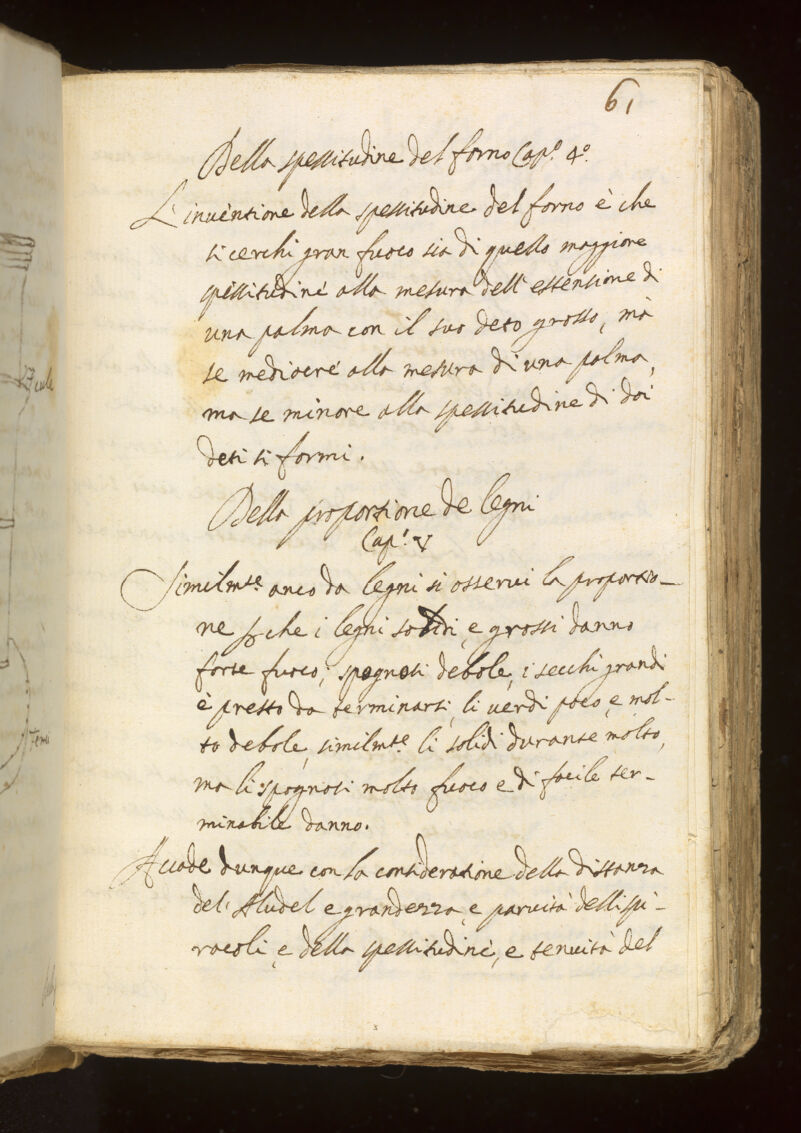 61
Della spessitudine del forno Cap.º 4º
L'inuentione della spessitudine del forno è che
si cerchi gran fuoco sia di quello maggiore
spissitudine alla mesura dell'estensione di
una palma con il suo deto grosso, mà
se mediocre alla mesura di una palma,
ma se minore alla spessitudine di doi
deti si formi.
Della proportione de legni
Cap.º V
Similm.te anco da legni si osserui la proportio-
ne che i legni solidi, e grossi danno
forte fuoco, spognosi debole, i secchi grandi
è presto da terminarsi, li uerdi poco, e mol-
to debole, similm.te li solidi durante molto,
ma li spognosi molto fuoco e di facile ter-
minabile danno.
Accade dunque con la consideratione della distanza
del Aludel e grandezza, e paruità delli spi-
racoli, e della spessitudine, e tenuità del